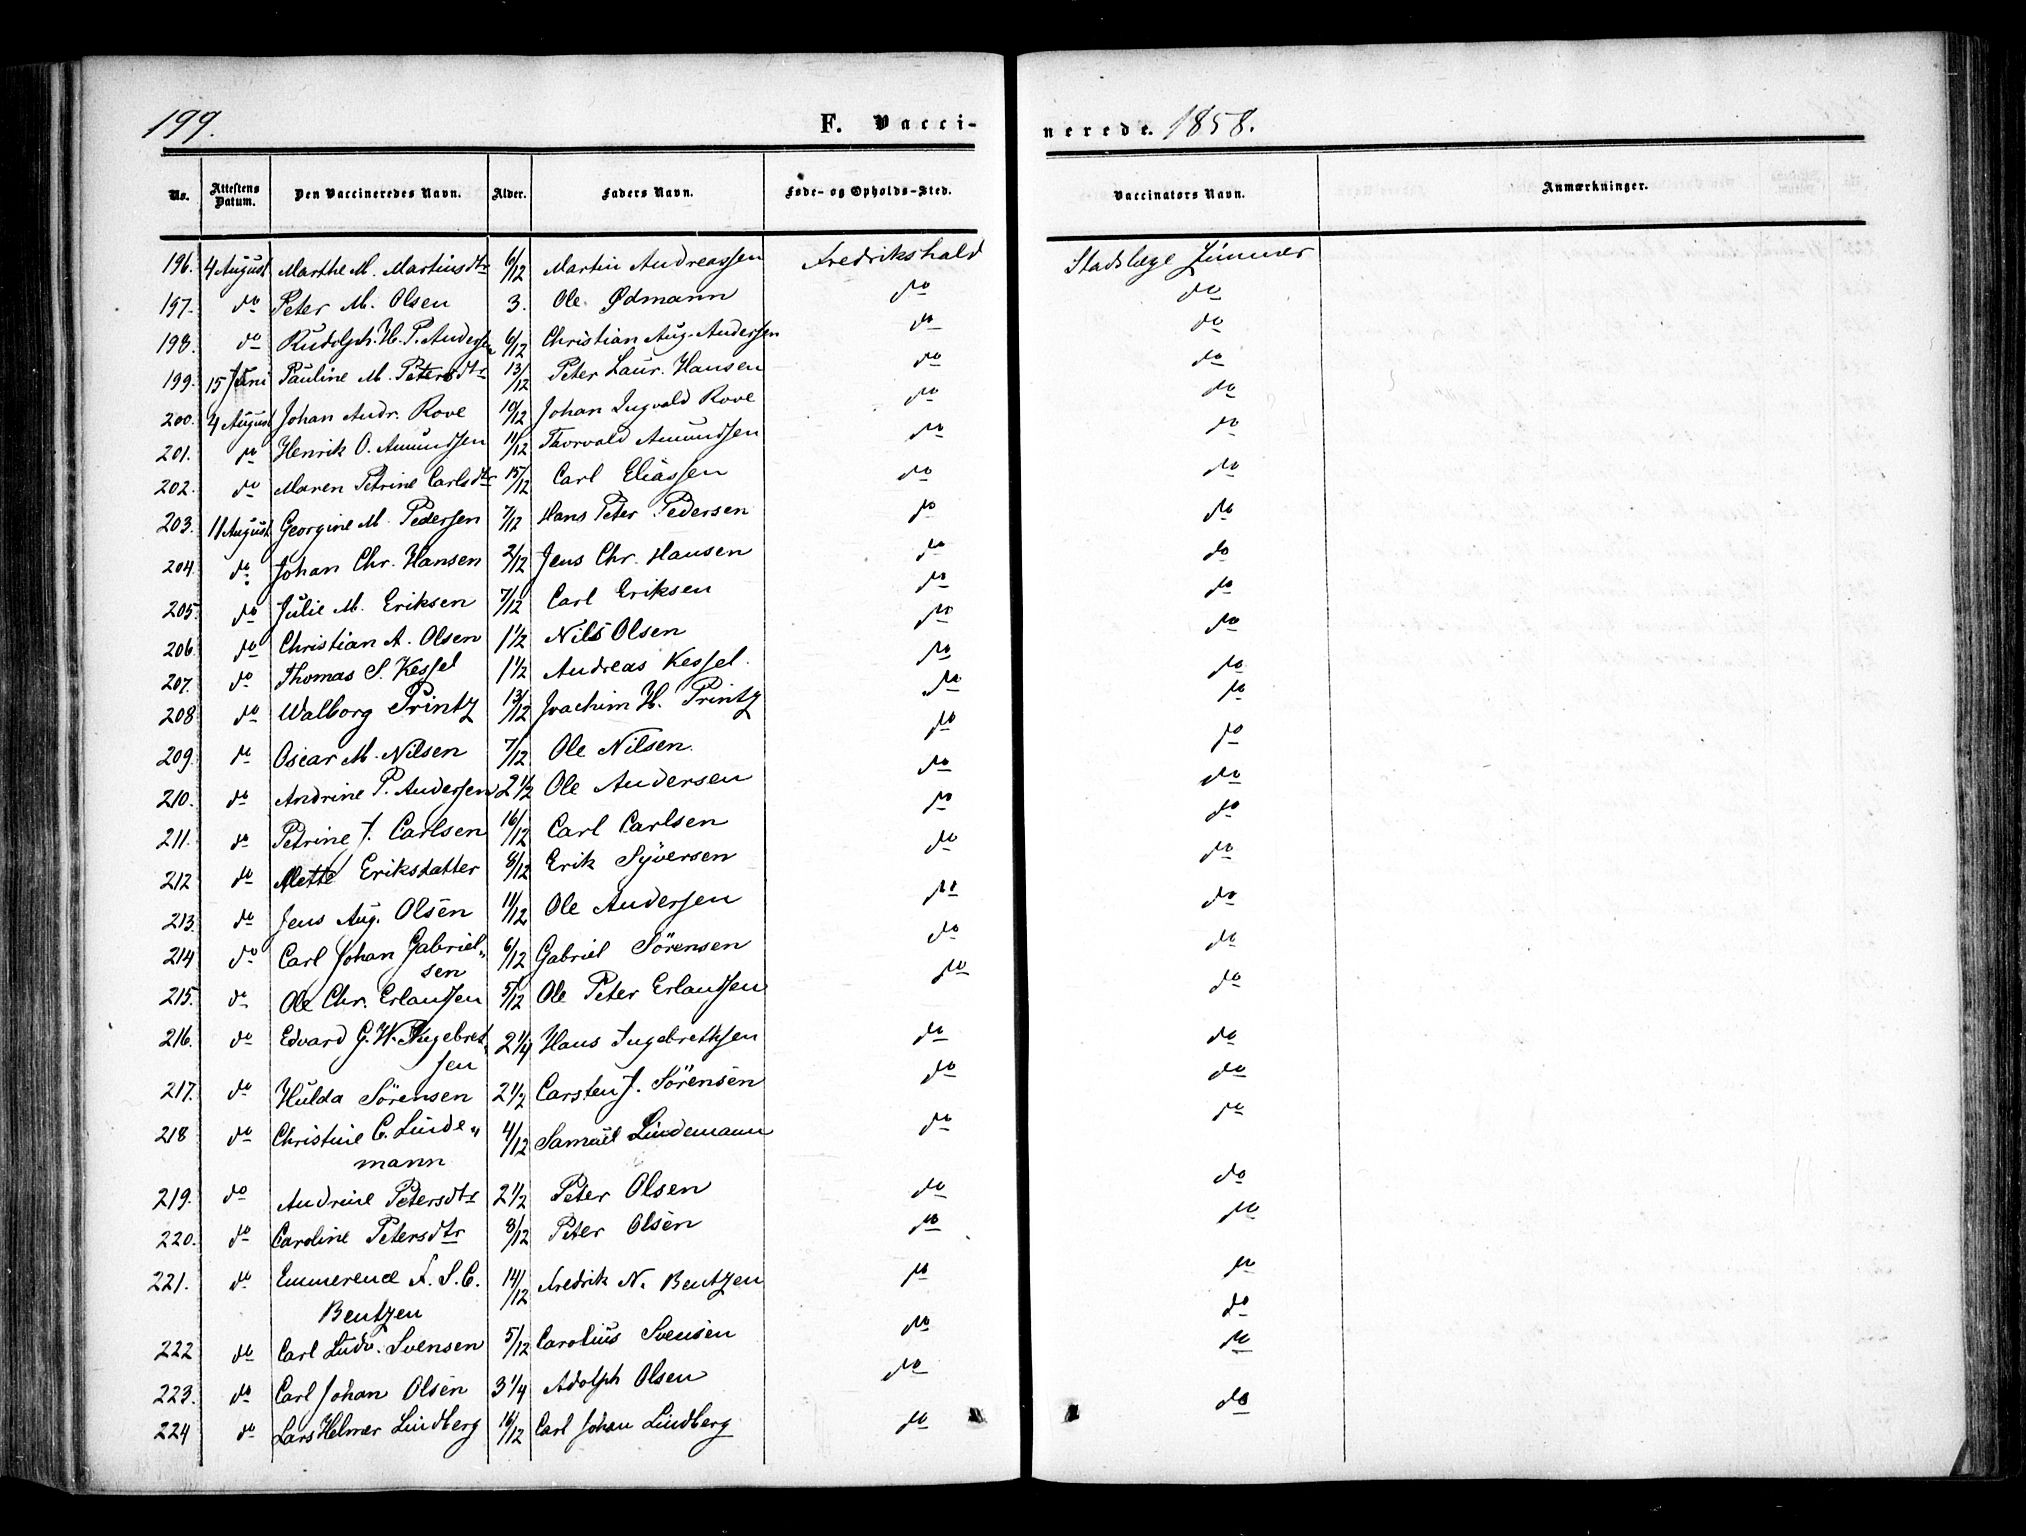 199. F. Vacci- nerede. 1858.
No. Attestens Datum. Den Vaccineredes Navn. Alder. Faders Navn. Føde- og Opholds-Sted. Vaccinators Navn. Anmærkninger.
196. 4 August Marthe M. Martinsdtr 6/12 Martin Andreassen Fredrikshald Stadslæge Zimmer
197. do Peter M. Olsen 3. Ole Ødmann do do
198. do Rudolph. H. P. Andersen 6/12 Christian Aug. Andersen do do
199. 15 Juni Pauline M. Petersdtr 13/12 Peter Laur. Hansen do do
200. 4 August Johan Andr. Rove 10/12 Johan Ingvald Rove do do
201. do Henrik O. Amundsen 11/12 Thorvald Amundsen do do
202. do Maren Petrine Carlsdtr 15/12 Carl Eliassen do do
203. 11 August Georgine M. Pedersen 7/12 Hans Peter Pedersen do do
204. do Johan Chr. Hansen 2/12 Jens Chr. Hansen do do
205. do Julie M. Eriksen 7/12 Carl Eriksen do do
206. do Christian A. Olsen 1 1/2 Nils Olsen do do
207. do Thomas S. Kessel 1 1/2 Andreas Kessel. do do
208 do Walborg Printz 13/12 Joachim H. Printz do do
209. do Oscar M. Nilsen 7/12 Ole Nilsen. do do
210. do Andrine P. Andersen 2 1/2 Ole Andersen do do
211. do Petrine J. Carlsen 16/12 Carl Carlsen do do
212 do Mette Eriksdatter 8/12 Erik Syversen do do
213. do Jens Aug. Olsen 11/12 Ole Andersen do do
214 do Carl Johan Gabriel„ 6/12 Gabriel Sörensen do do
sen
215. do Ole Chr. Erlandsen 5/12 Ole Peter Erlandsen do do
216. do Edvard G. W. Ingebret„ 2 1/4 Hans Ingebrethsen do do
sen
217. do Hulda Sörensen 2 1/2 Carsten J. Sörensen do do
218 do Christine C. Linde„ 4/12 Samuel Lindemann do do
mann
219. do Andrine Petersdtr 2 1/2 Peter Olsen do do
220. do Caroline Petersdtr 8/12 Peter Olsen do do
221. do Emmerence F. S. C. 14/12 Fredrik N. Bentzen do do
Bentzen
222 do Carl Ludv. Svensen 5/12 Carolius Svensen do do
223. do Carl Johan Olsen 3 1/4 Adolph Olsen do do
224 do Lars Helmer Lindberg 16/12 Carl Johan Lindberg do do